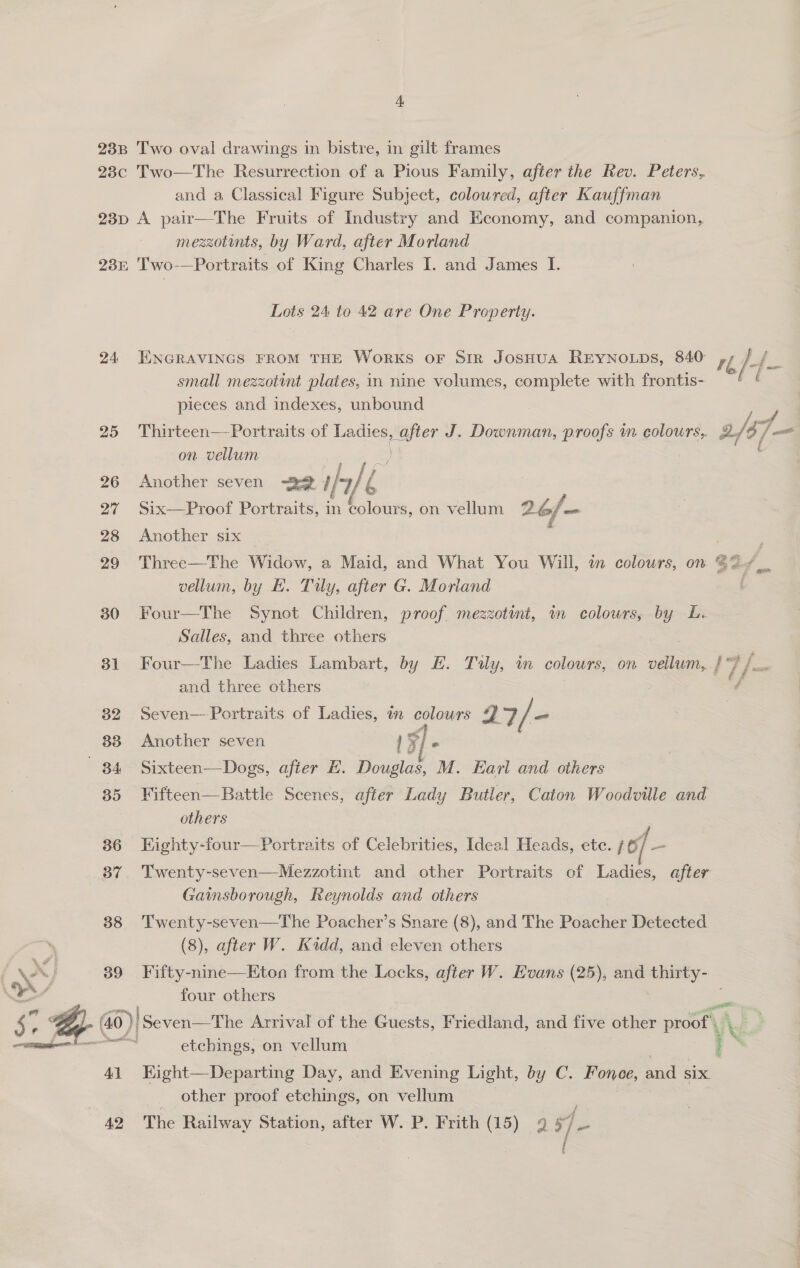 4
23B Two oval drawings in bistre, in gilt frames
23C Two—The Resurrection of a Pious Family, after the Rev. Peters,
and a Classical Figure Subject, coloured, after Kauffman
23D A pair—The Fruits of Industry and Economy, and companion,
mezzotints, by Ward, after Morland
23E Two—Portraits of King Charles I. and James I.
Lots 24 to 42 are One Property.
24 ENGRAVINGS FROM THE WORKS OF SIR JOSHUA REYNOLDS, 840
small mezzotint plates, in nine volumes, complete with frontis-
pieces and indexes, unbound
25 Thirteen—Portraits of Ladies, after J. Downman, proofs in colours, 2/5/-
on vellum
26 Another seven 1/7/6
27 Six—Proof Portraits, in colours, on vellum 26/-
28 Another six
29 Three—The Widow, a Maid, and What You Will, in colours, on 22/-
vellum, by E. Tily, after G. Morland
30 Four—The Synot Children, proof mezzotint, in colours, by L.
Salles, and three others
31 Four—The Ladies Lambart, by E. Tily, in colours, on vellum, 17/-
and three others
32 Seven—Portraits of Ladies, in colours 27/-
33 Another seven 15/-
34 Sixteen—Dogs, after E. Douglas, M. Earl and others
35 Fifteen—Battle Scenes, after Lady Butler, Caton Woodville and
others
36 Eighty-four—Portraits of Celebrities, Ideal Heads, etc. 16/-
37 Twenty-seven—Mezzotint and other Portraits of Ladies, after
Gainsborough, Reynolds and others
38 Twenty-seven—The Poacher's Snare (8), and The Poacher Detected
(8), after W. Kidd, and eleven others
39 Fifty-nine—Eton from the Locks, after W. Evans (25), and thirty-
four others
40 Seven—The Arrival of the Guests, Friedland, and five other proof
etchings, on vellum
41 Eight—Departing Day, and Evening Light, by C. Fonce, and six
other proof etchings, on vellum
42 The Railway Station, after W. P. Frith (15) 25/-